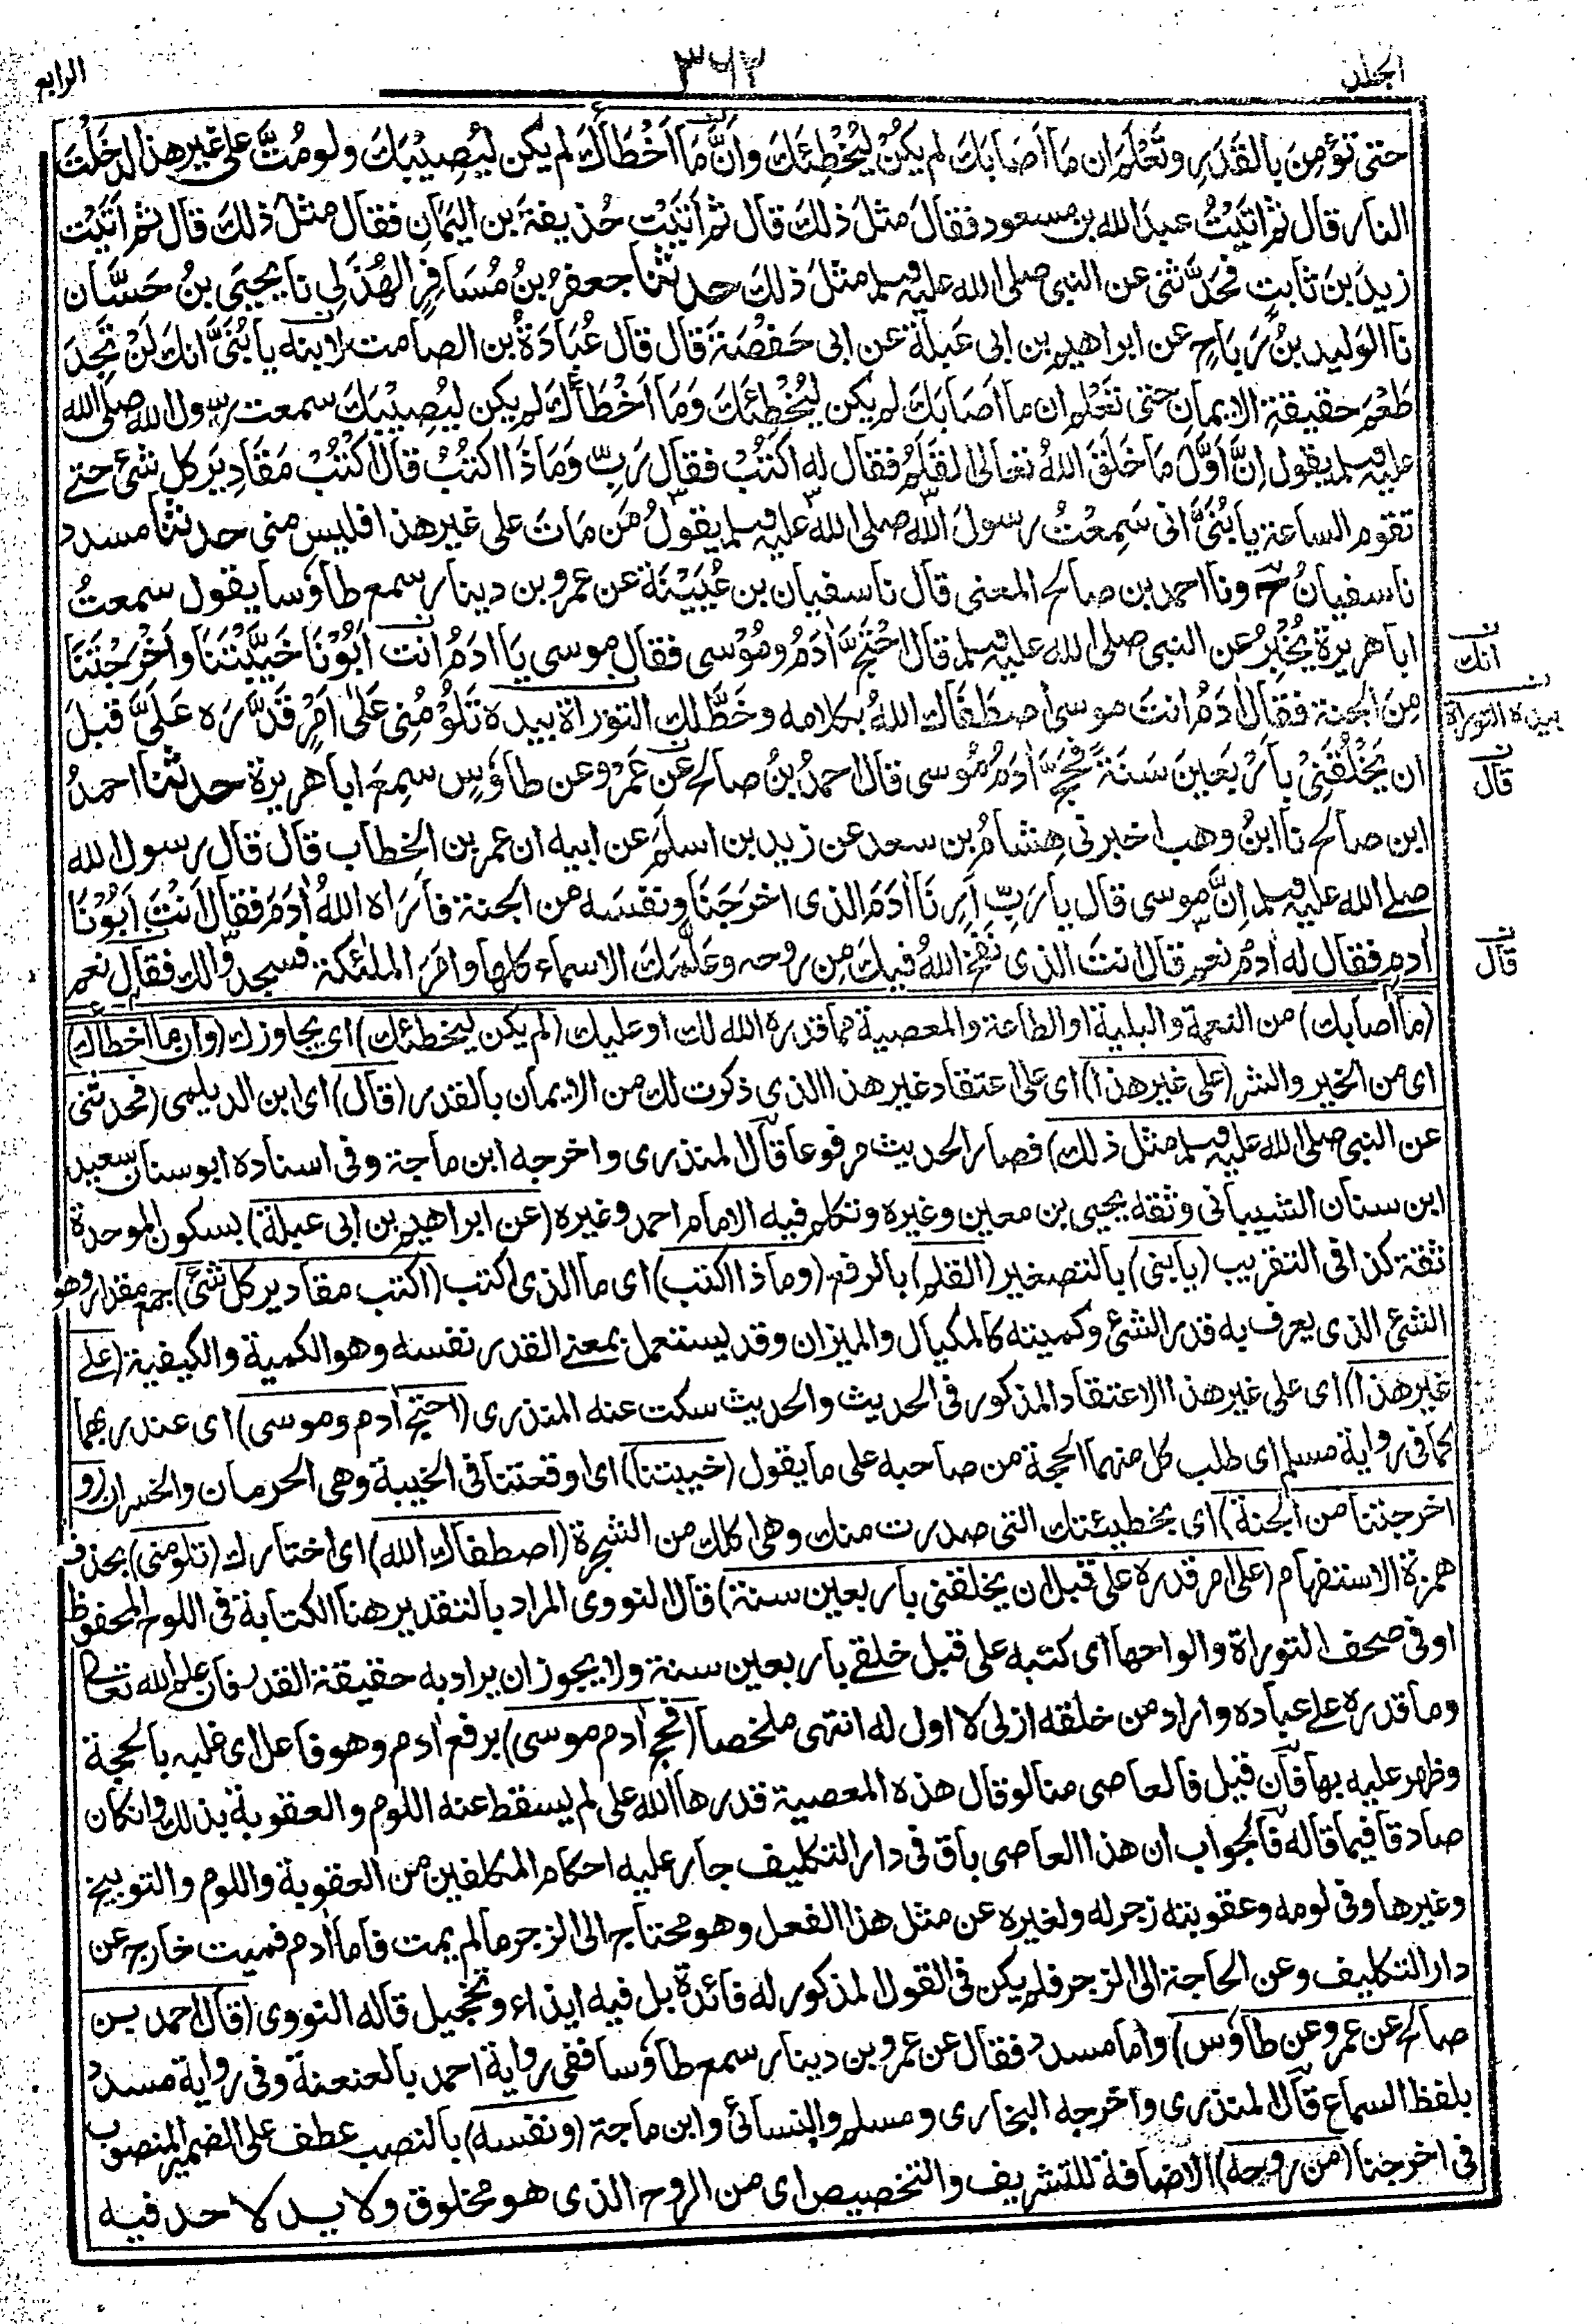 الجلد
٣٦٢
الرابع
حتى تؤمِنَ بالقَدَرِ وتَعْلَمَ ان ما اَصَابَكَ لم يكنْ لِيُخْطِئَكَ واَنَّ مَا اَخْطَأَكَ لم يكن لِيُصِيْبَكَ ولو مُتَّ على غير هذا لدخَلْتَ
النار قال ثم اتَيْتُ عبدَ الله بن مسعود فقالَ مثلَ ذلكَ قال ثم اَتَيْتُ حُذيفةَ بن اليَمَانِ فقال مثلَ ذلكَ قال ثم اَتَيْتُ
زيدَ بنَ ثابتٍ فحَدَّثنى عن النبى صلى الله عليه وسلم مثلَ ذلكَ حدثنا جعفرُ بنُ مُسَافِرٍ الهُذَلِى نا يحيَى بنُ حَسَّان
نا الوَليد بنُ رَبَاحٍ عن ابراهيم بن ابى عَبلة عن ابى حَفْصَةَ قال قال عُبَادَةُ بن الصامت لابنه يا بُنَىَّ انك لَنْ تَجِدَ
طَعْمَ حقيقةِ الايمان حتى تَعْلم ان ما اَصَابَكَ لم يكن لِيُخْطِئَكَ وَمَا اَخْطَأَكَ لم يكن لِيُصِيْبَكَ سمعت رسول الله صلى الله
عليه وسلم يقول اِنَّ اَوَّلَ مَا خَلَقَ اللهُ تعالى القَلَمُ فقال له اكتُبْ فقال رَبِّ وَمَا ذَا اكتُبُ قال اكتُبْ مَقَادِيرَ كل شئ حتے
تقوم الساعة يا بُنَىَّ انى سَمِعْتُ رسولَ الله صلى الله عليه وسلم يقولُ مَن مَاتَ على غير هذا فليس منى حدثنا مسدد
نا سفيانُ ح ونا احمد بن صالح المعنى قال نا سفيان بن عُيَيْنَةَ عن عمرو بن دينار سمع طاؤسا يقول سمعتُ
ابا هريرة يُخْبِرُ عن النبى صلى الله عليه وسلم قال احْتَجَّ اٰدَمُ ومُوْسى فقال موسى يَا اٰدَمُ انت اَبُوْنَا خَيَّبْتَنَا واَخْرَجْتَنَا
مِنَ الجنة فقال اٰدَمُ انتَ موسى اصطَفَاك اللهُ بكلامه وخَطَّ لك التوراة بيده تَلُوْمُنِى عَلىٰ اَمْرٍ قَدَّرَه عَلَىَّ قبلَ
ان يَخْلُقَنِىْ بِاَرْبَعِينَ سَنَةً فَحَجَّ اٰدَمُ مُوسى قال احمدُ بنُ صالح عن عَمْرٍو عن طاوٗسٍ سمِعَ ابا هريرة حدثنا احمدُ
ابن صالح نا ابنُ وهب اخبرنى هِشامُ بن سعد عن زيد بن اسلَمَ عن ابيه ان عمر بن الخطاب قال قال رسول الله
صلے الله عليه وسلم اِنَّ موسى قال يا رَبِّ اَرِنَا اٰدَمَ الذى اخرَجَنَا ونفسَه من الجنة فأَرَاه اللهُ اٰدَمَ فقال اَنْتَ اَبُوْنَا
اٰدم فقال له اٰدمُ نعم قال انتَ الذى نَفَخَ اللهُ فيكَ مِن رُوحه وعَلَّمَكَ الاسماء كلها واَمَرَ الملٰئكة فسجدوا لك فقال نعم
انك
بيده التوراة
قال
قال
(ما اصابك) من النعمة والبلية او الطاعة والمعصية مما قدره الله لك او عليك (لم يكن ليخطئك) اى يجاوزك (وان ما اخطأك)
اى من الخير والشر (على غير هذا) اى على اعتقاد غير هذا الذى ذكرت لك من الايمان بالقدر (قال) اى ابن الديلمى (فحدثنى
عن النبى صلى الله عليه وسلم مثل ذلك) فصار الحديث مرفوعا قال المنذرى واخرجه ابن ماجة وفى اسناده ابو سنان سعيد
ابن سنان الشيبانى وثقه يحيى بن معين وغيره وتكلم فيه الامام احمد وغيره (عن ابراهيم بن ابى عبلة) بسكون الموحدة
ثقة كذا فى التقريب (يا بنى) بالتصغير (القلم) بالرفع (وما ذا اكتب) اى ما الذى اكتب (اكتب مقادير كل شئ) جمع مقدار وهو
الشئ الذى يعرف به قدر الشئ وكميته كالمكيال والميزان وقد يستعمل بمعنے القدر نفسه وهو الكمية والكيفية (علے
غير هذا) اى على غير هذا الاعتقاد المذكور فى الحديث والحديث سكت عنه المنذرى (احتج اٰدم وموسى) اى عند ربهما
كما فى رواية مسلم اى طلب كل منهما الحجة من صاحبه على ما يقول (خيبتنا) اى اوقعتنا فى الخيبة وهى الحرمان والخسران (و
اخرجتنا من الجنة) اى بخطيئتك التى صدرت منك وهى اكلك من الشجرة (اصطفاك الله) اى اختارك (تلومنى) بحذف
همزة الاستفهام (على امر قدره على قبل ان يخلقنى باربعين سنة) قال النووى المراد بالتقدير هنا الكتابة فى اللوح المحفوظ
او فى صحف التوراة والواحها اى كتبه على قبل خلقے باربعين سنة ولا يجوز ان يراد به حقيقة القدر فان علم الله تعالى
وما قدره علے عباده واراد من خلقه ازلى لا اول له انتهى ملخصا (فحج اٰدم موسى) برفع اٰدم وهو فاعل اى غلبه بالحجة
وظهر عليه بها فان قيل فالعاصى منا لو قال هذه المعصية قدرها الله على لم يسقط عنه اللوم والعقوبة بذلك وان كان
صادقا فيما قاله فالجواب ان هذا العاصى باق فى دار التكليف جار عليه احكام المكلفين من العقوبة واللوم والتوبيخ
وغيرها وفى لومه وعقوبته زجر له ولغيره عن مثل هذا الفعل وهو محتاج الى الزجر ما لم يمت فاما اٰدم فميت خارج عن
دار التكليف وعن الحاجة الى الزجر فلم يكن فى القول المذكور له فائدة بل فيه ايذاء وتخجيل قاله النووى (قال احمد بن
صالح عن عمرو عن طاوٗس) واما مسدد فقال عن عمرو بن دينار سمع طاوٗسا ففى رواية احمد بالعنعنة وفى رواية مسدد
بلفظ السماع قال المنذرى واخرجه البخارى ومسلم والنسائى وابن ماجة (ونفسه) بالنصب عطف على الضمير المنصوب
فى اخرجنا (من روحه) الاضافة للتشريف والتخصيص اى من الروح الذى هو مخلوق ولا يد لاحد فيه